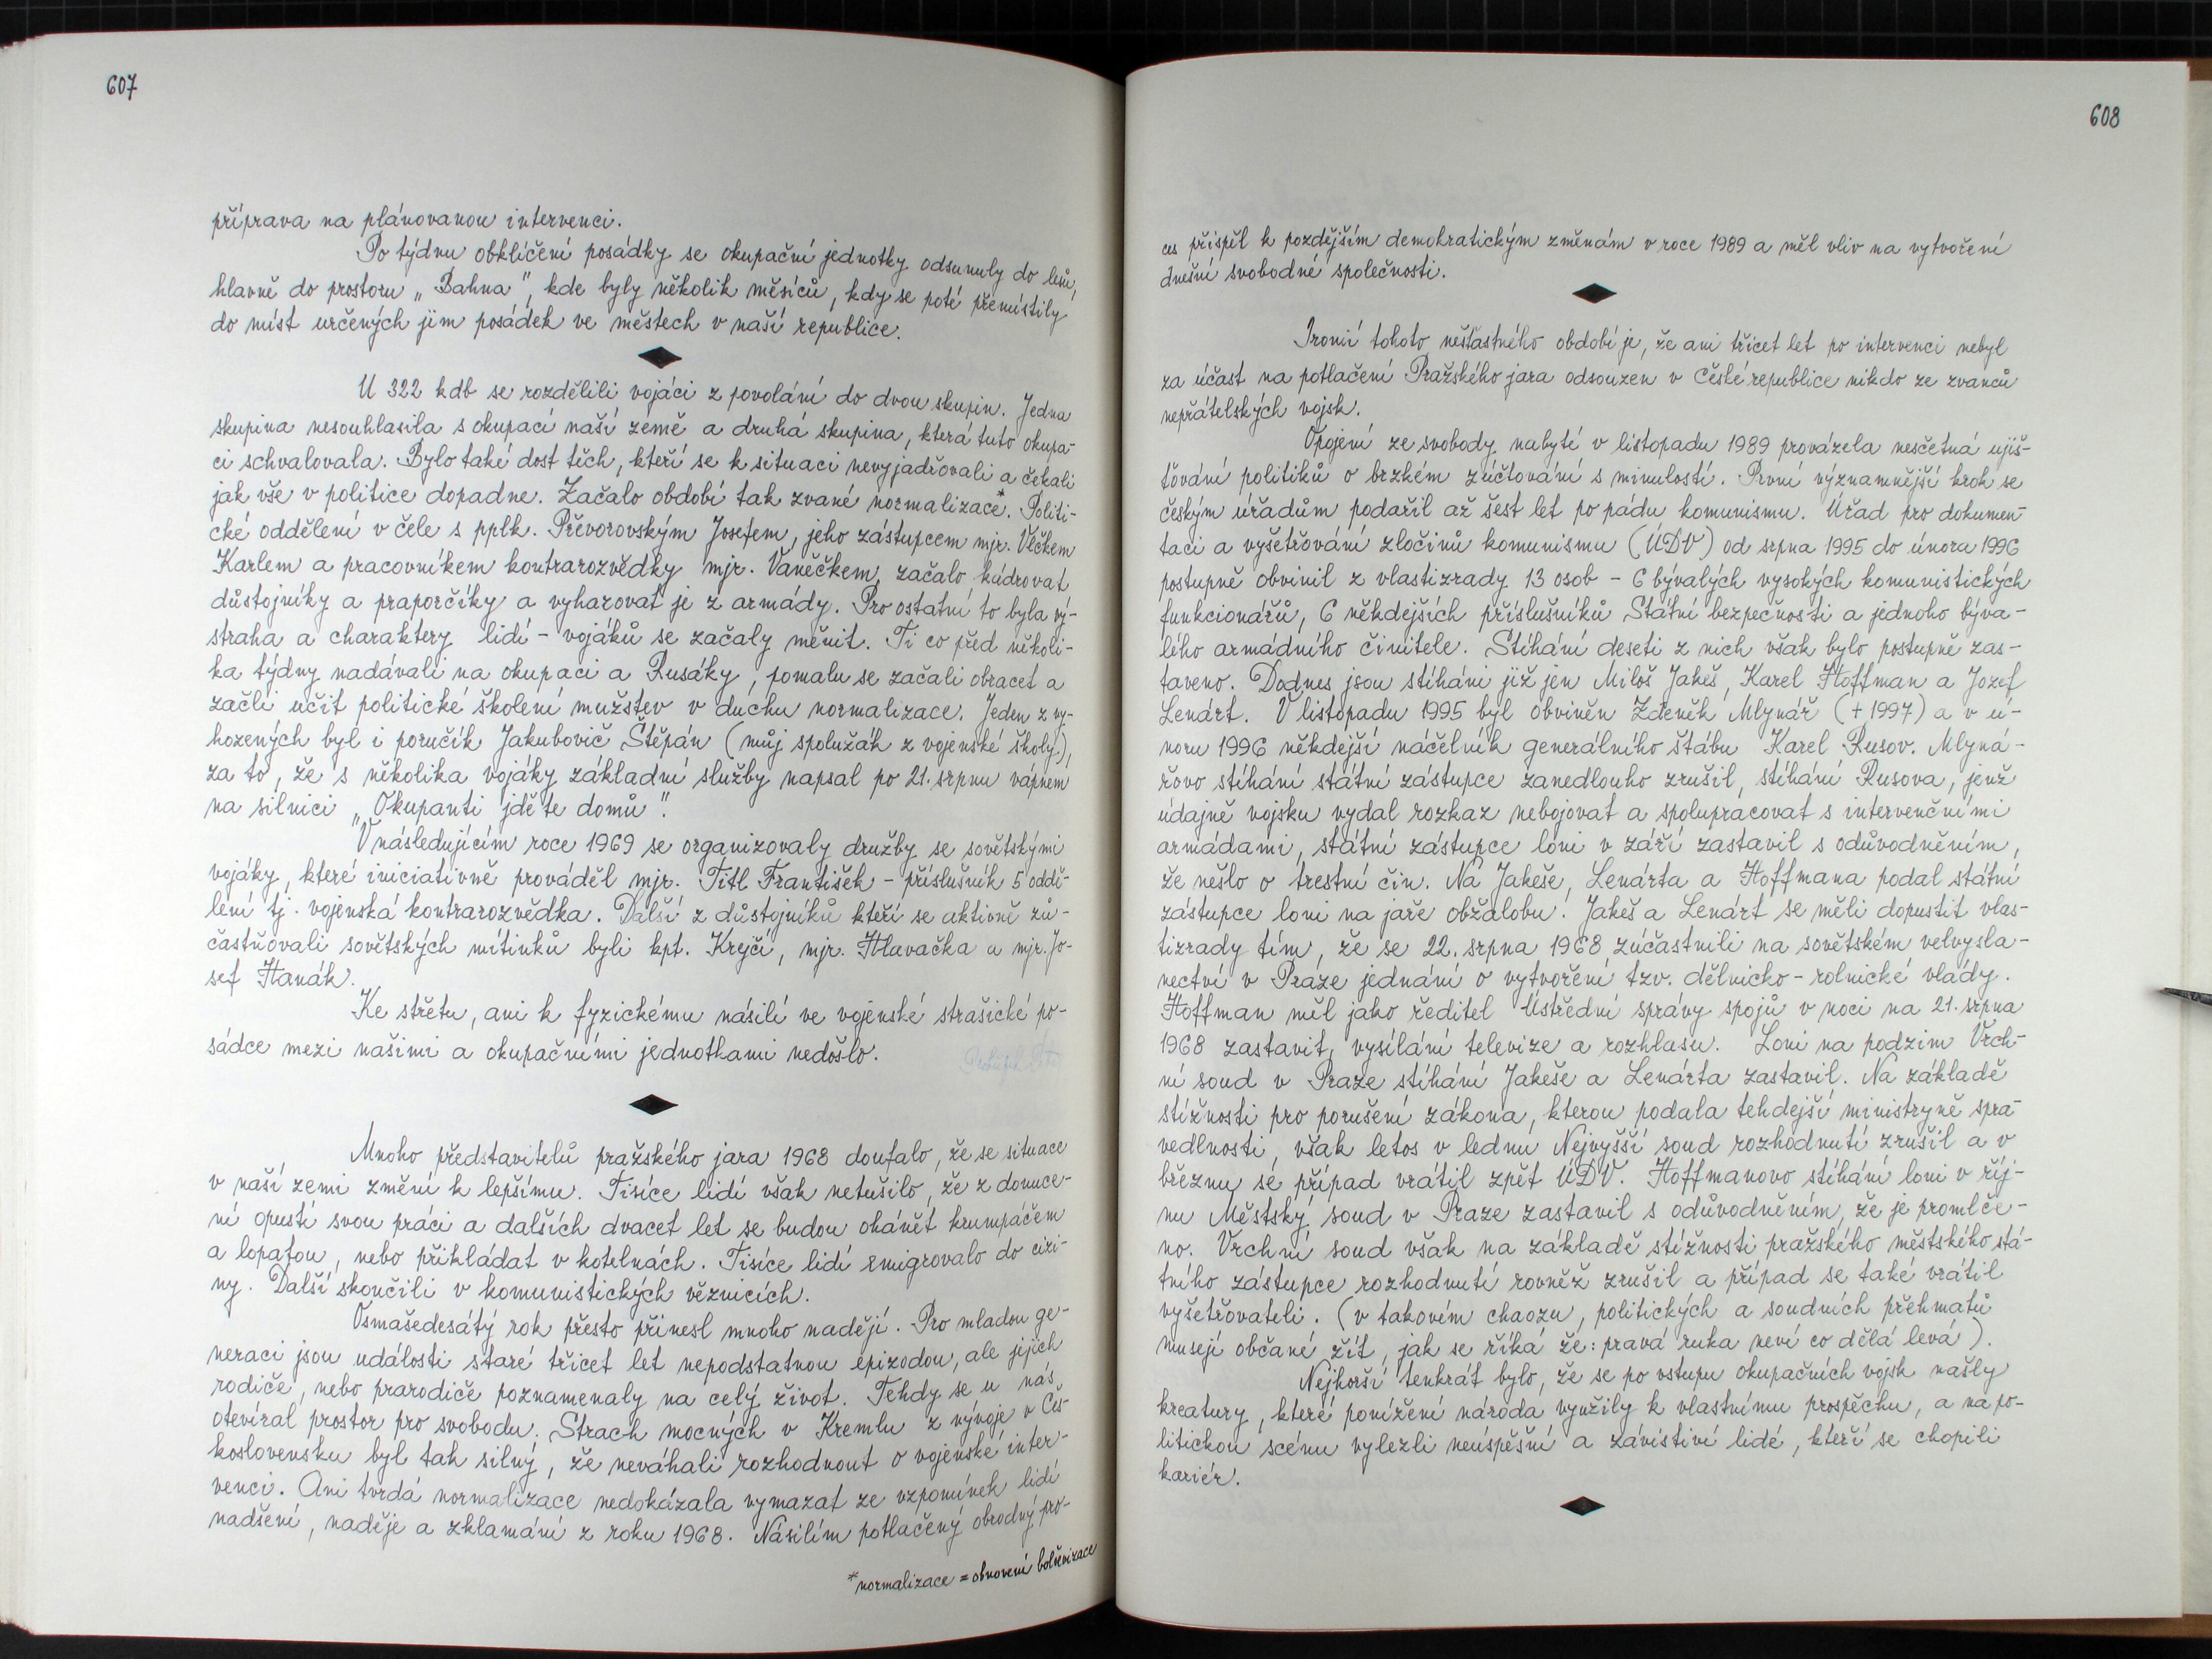 607
příprava na plánovanou intervenci.
Po týdnu obklíčení posádky se okupační jednotky odsunuly do lesů,
hlavně do prostoru „Bahna", kde byly několik měsíců, kdy se poté přemístily
do míst určených jim posádek ve městech v naší republice.
U 322 kdb se rozdělili vojáci z povolání do dvou skupin. Jedna
skupina nesouhlasila s okupací naší země a druhá skupina, která tuto okupa-
ci schvalovala. Bylo také dost těch, kteří se k situaci nevyjadřovali a čekali
jak vše v politice dopadne. Začalo období tak zvané normalizace*. Politi-
cké oddělení v čele s pplk. Převorovským Josefem, jeho zástupcem mjr. Vlčkem
Karlem a pracovníkem kontrarozvědky mjr. Vaněčkem, začalo kádrovat
důstojníky a praporčíky a vyhazovat je z armády. Pro ostatní to byla vý-
straha a charaktery lidí - vojáků se začaly měnit. Ti co před několi-
ka týdny nadávali na okupaci a Rusáky, pomalu se začali obracet a
začli učit politické školení mužstev v duchu normalizace. Jeden z vy-
hozených byl i poručík Jakubovič Štěpán (můj spolužák z vojenské školy),
za to, že s několika vojáky základní služby napsal po 21. srpnu vápnem
na silnici „Okupanti jděte domů".
V následujícím roce 1969 se organizovaly družby se sovětskými
vojáky, které iniciativně prováděl mjr. Titl František - příslušník 5 oddě-
lení tj. vojenská kontrarozvědka. Další z důstojníků kteří se aktivně zú-
častňovali sovětských mítinků byli kpt. Krejčí, mjr. Hlavačka a mjr. Jo-
sef Hanák.
Ke střetu, ani k fyzickému násilí ve vojenské strašické po-
sádce mezi našimi a okupačními jednotkami nedošlo.
Mnoho představitelů pražského jara 1968 doufalo, že se situace
v naší zemi změní k lepšímu. Tisíce lidí však netušilo, že z donuce-
ní opustí svou práci a dalších dvacet let se budou ohánět krumpáčem
a lopatou, nebo přikládat v kotelnách. Tisíce lidí emigrovalo do cizi-
ny. Další skončili v komunistických věznicích.
Osmašedesátý rok přesto přinesl mnoho nadějí. Pro mladou ge-
neraci jsou události staré třicet let nepodstatnou epizodou, ale jejich
rodiče, nebo prarodiče poznamenaly na celý život. Tehdy se u nás
otevíral prostor pro svobodu. Strach mocných v Kremlu z vývoje v Čes-
koslovensku byl tak silný, že neváhali rozhodnout o vojenské inter-
venci. Ani tvrdá normalizace nedokázala vymazat ze vzpomínek lidí
nadšení, naděje a zklamání z roku 1968. Násilím potlačený obrodný pro-
*normalizace = obnovení bolševizace
608
ces přispěl k pozdějším demokratickým změnám v roce 1989 a měl vliv na vytvoření
dnešní svobodné společnosti.
Ironií tohoto nešťastného období je, že ani třicet let po intervenci nebyl
za účast na potlačení Pražského jara odsouzen v České republice nikdo ze zvanců
nepřátelských vojsk.
Opojení ze svobody nabyté v listopadu 1989 provázela nesčetná ujiš-
ťování politiků o brzkém zúčtování s minulostí. První významnější krok se
českým úřadům podařil až šest let po pádu komunismu. Úřad pro dokumen-
taci a vyšetřování zločinů komunismu (ÚDV) od srpna 1995 do února 1996
postupně obvinil z vlastizrady 13 osob - 6 bývalých vysokých komunistických
funkcionářů, 6 někdejších příslušníků Státní bezpečnosti a jednoho býva-
lého armádního činitele. Stíhání deseti z nich však bylo postupně zas-
taveno. Dodnes jsou stíháni již jen Miloš Jakeš, Karel Hoffman a Jozef
Lenárt. V listopadu 1995 byl obviněn Zdeněk Mlynář (+ 1997) a v ú-
noru 1996 někdejší náčelník generálního štábu Karel Rusov. Mlyná-
řovo stíhání státní zástupce zanedlouho zrušil, stíhání Rusova, jenž
údajně vojsku vydal rozkaz nebojovat a spolupracovat s intervenčními
armádami, státní zástupce loni v září zastavil s odůvodněním,
že nešlo o trestní čin. Na Jakeše, Lenárta a Hoffmana podal státní
zástupce loni na jaře obžalobu. Jakeš a Lenárt se měli dopustit vlas-
tizrady tím, že se 22. srpna 1968 zúčastnili na sovětském velvysla-
nectví v Praze jednání o vytvoření tzv. dělnicko-rolnické vlády.
Hoffman měl jako ředitel Ústřední správy spojů v noci na 21. srpna
1968 zastavit vysílání televize a rozhlasu. Loni na podzim Vrch-
ní soud v Praze stíhání Jakeše a Lenárta zastavil. Na základě
stížnosti pro porušení zákona, kterou podala tehdejší ministryně spra-
vedlnosti, však letos v lednu Nejvyšší soud rozhodnutí zrušil a v
březnu se případ vrátil zpět ÚDV. Hoffmanovo stíhání loni v říj-
nu Městský soud v Praze zastavil s odůvodněním, že je promlče-
no. Vrchní soud však na základě stížnosti pražského městského stá-
tního zástupce rozhodnutí rovněž zrušil a případ se také vrátil
vyšetřovateli. (v takovém chaozu, politických a soudních přehmatů
musejí občané žít, jak se říká že: pravá ruka neví co dělá levá).
Nejhorší tenkrát bylo, že se po vstupu okupačních vojsk našly
kreatury, které ponížení národa využily k vlastnímu prospěchu, a na po-
litickou scénu vylezli neúspěšní a závistiví lidé, kteří se chopili
kariér.